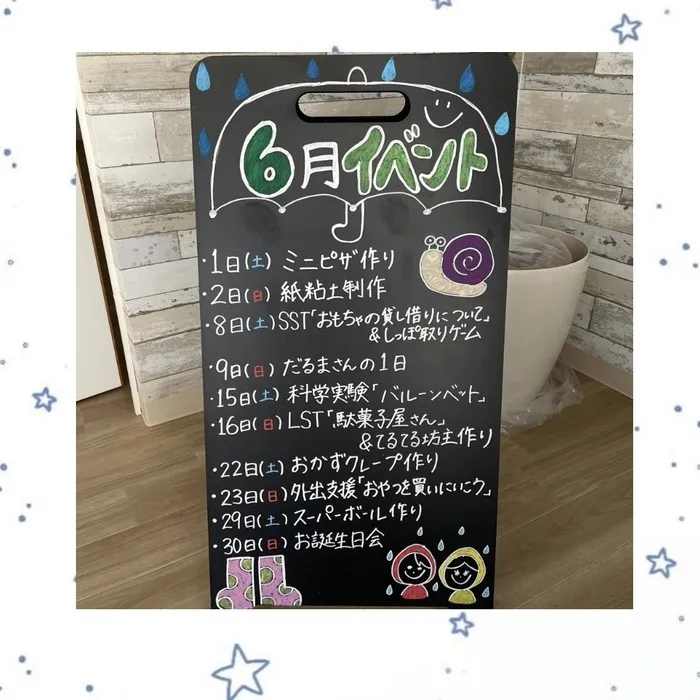 6月イベント
・1日(土) ミニピザ作り
・2日(日) 紙粘土制作
・8日(土) SST「おもちゃの貸し借りについて」
&しっぽ取りゲーム
・9日(日) だるまさんの1日
・15日(土) 科学実験「バルーンベット」
・16日(日) LST「駄菓子屋さん」
&てるてる坊主作り
・22日(土) おかずクレープ作り
・23日(日) 外出支援「おやつを買いにいこう」
・29日(土) スーパーボール作り
・30日(日) お誕生日会